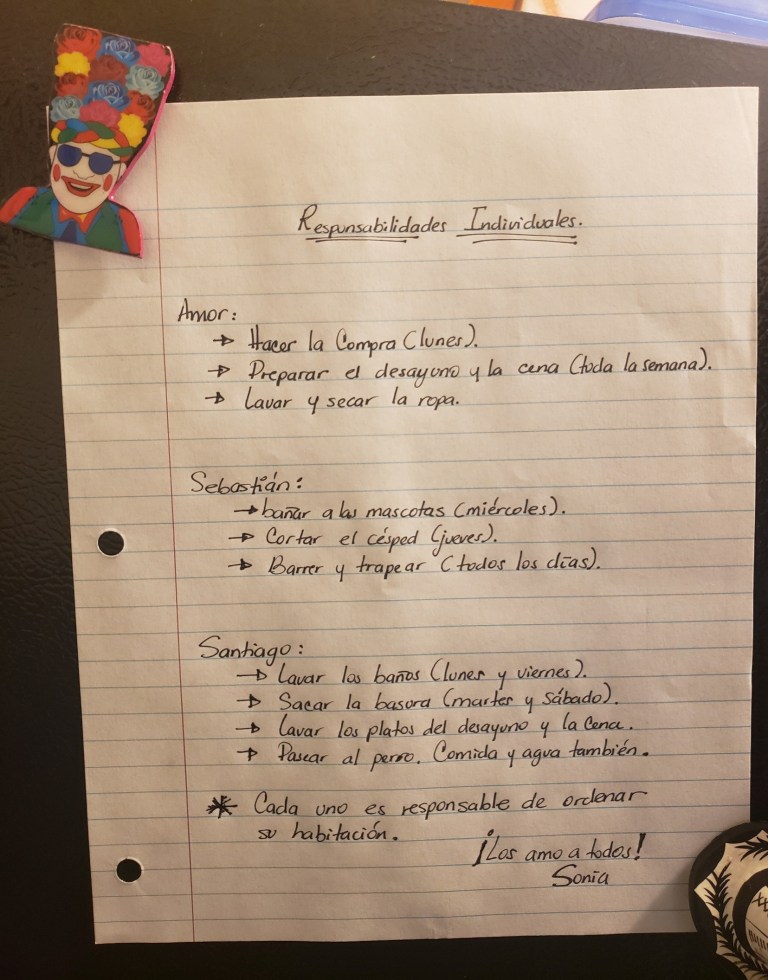 Responsabilidades Individuales.
Amor:
→ Hacer la Compra (lunes).
→ Preparar el desayuno y la cena (toda la semana).
→ Lavar y secar la ropa.
Sebastián:
→ bañar a las mascotas (miércoles).
→ Cortar el césped (jueves).
→ Barrer y trapear (todos los días).
Santiago:
→ Lavar los baños (lunes y viernes).
→ Sacar la basura (martes y sábado).
→ Lavar los platos del desayuno y la Cena.
→ Pasear al perro. Comida y agua también.
* Cada uno es responsable de ordenar
su habitación.
¡Los amo a todos!
Sonia